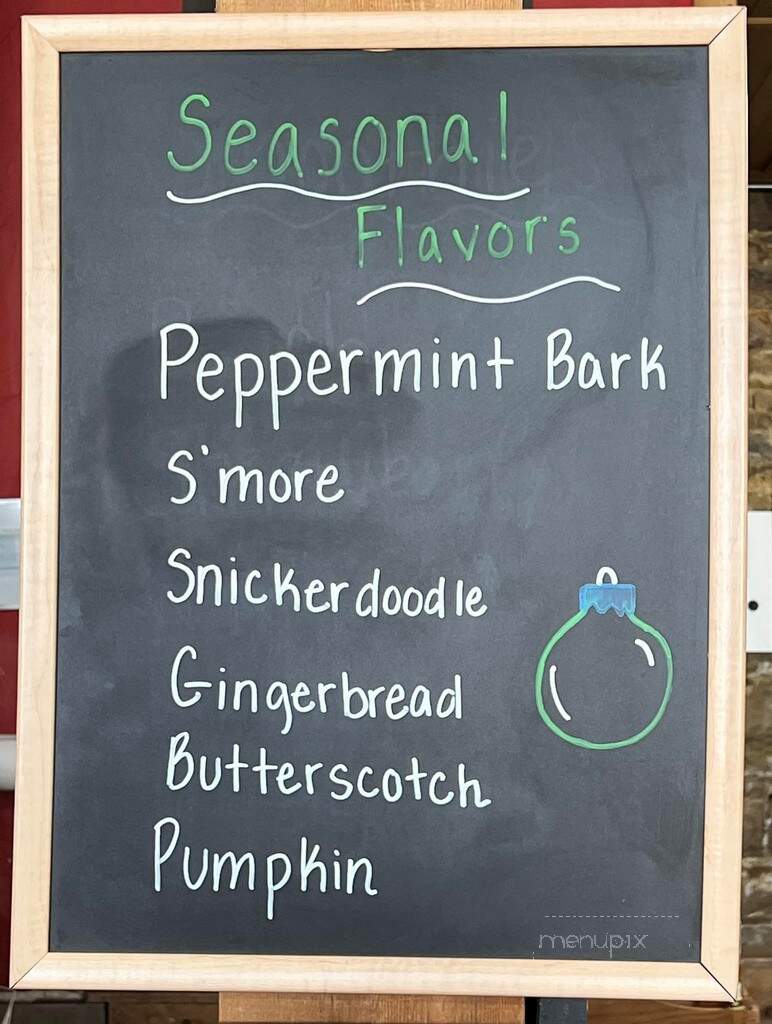 Seasonal
Flavors
Peppermint Bark
S'more
Snickerdoodle
Gingerbread
Butterscotch
Pumpkin
menupix